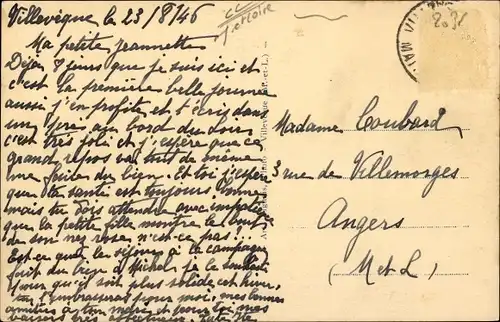 Villevêque le 23/8/46
Ma petite Jeannette
Déjà 8 jours que je suis ici et
c'est la première belle journée
aussi j'en profite et t'écris dans
un pré, au bord du Loir
c'est très joli et j'espère que ce
grand repos va tout de même
me faire du bien. Et toi j'espère
que ta santé est toujours bonne
mais tu dois attendre avec impatience
que la petite fille montre le bout
de son nez rose, n'est-ce pas!..
Est-ce que le séjour à la campagne
fait du bien à Michel, je le souhaite
pour qu'il soit plus solide cet hiver,
tu l'embrasseras pour moi, mes bonnes
amitiés à ton mari et pour toi mes
baisers très affectueux.
Madame Coubard
3 rue de Villemorges
Angers
(M et L)